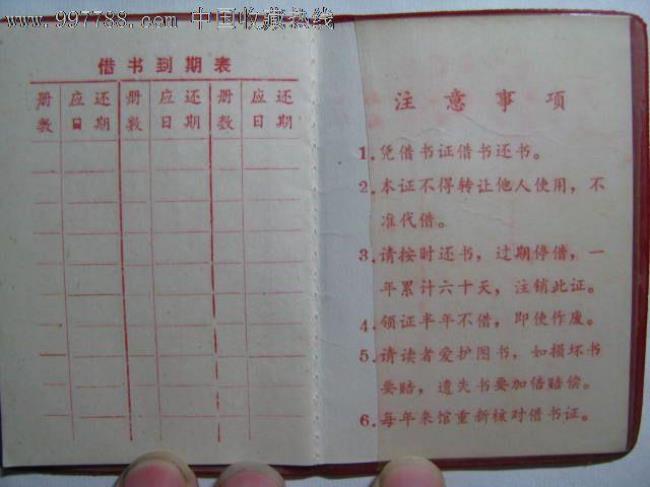 www.997788.com 中国收藏热线
借书到期表
册数 应还日期 册数 应还日期 册数 应还日期
注意事项
1.凭借书证借书还书。
2.本证不得转让他人使用，不
准代借。
3.请按时还书，过期停借，一
年累计六十天，注销此证。
4.领证半年不借，即使作废。
5.请读者爱护图书，如损坏书
要赔，遗失书要加倍赔偿。
6.每年来馆重新核对借书证。